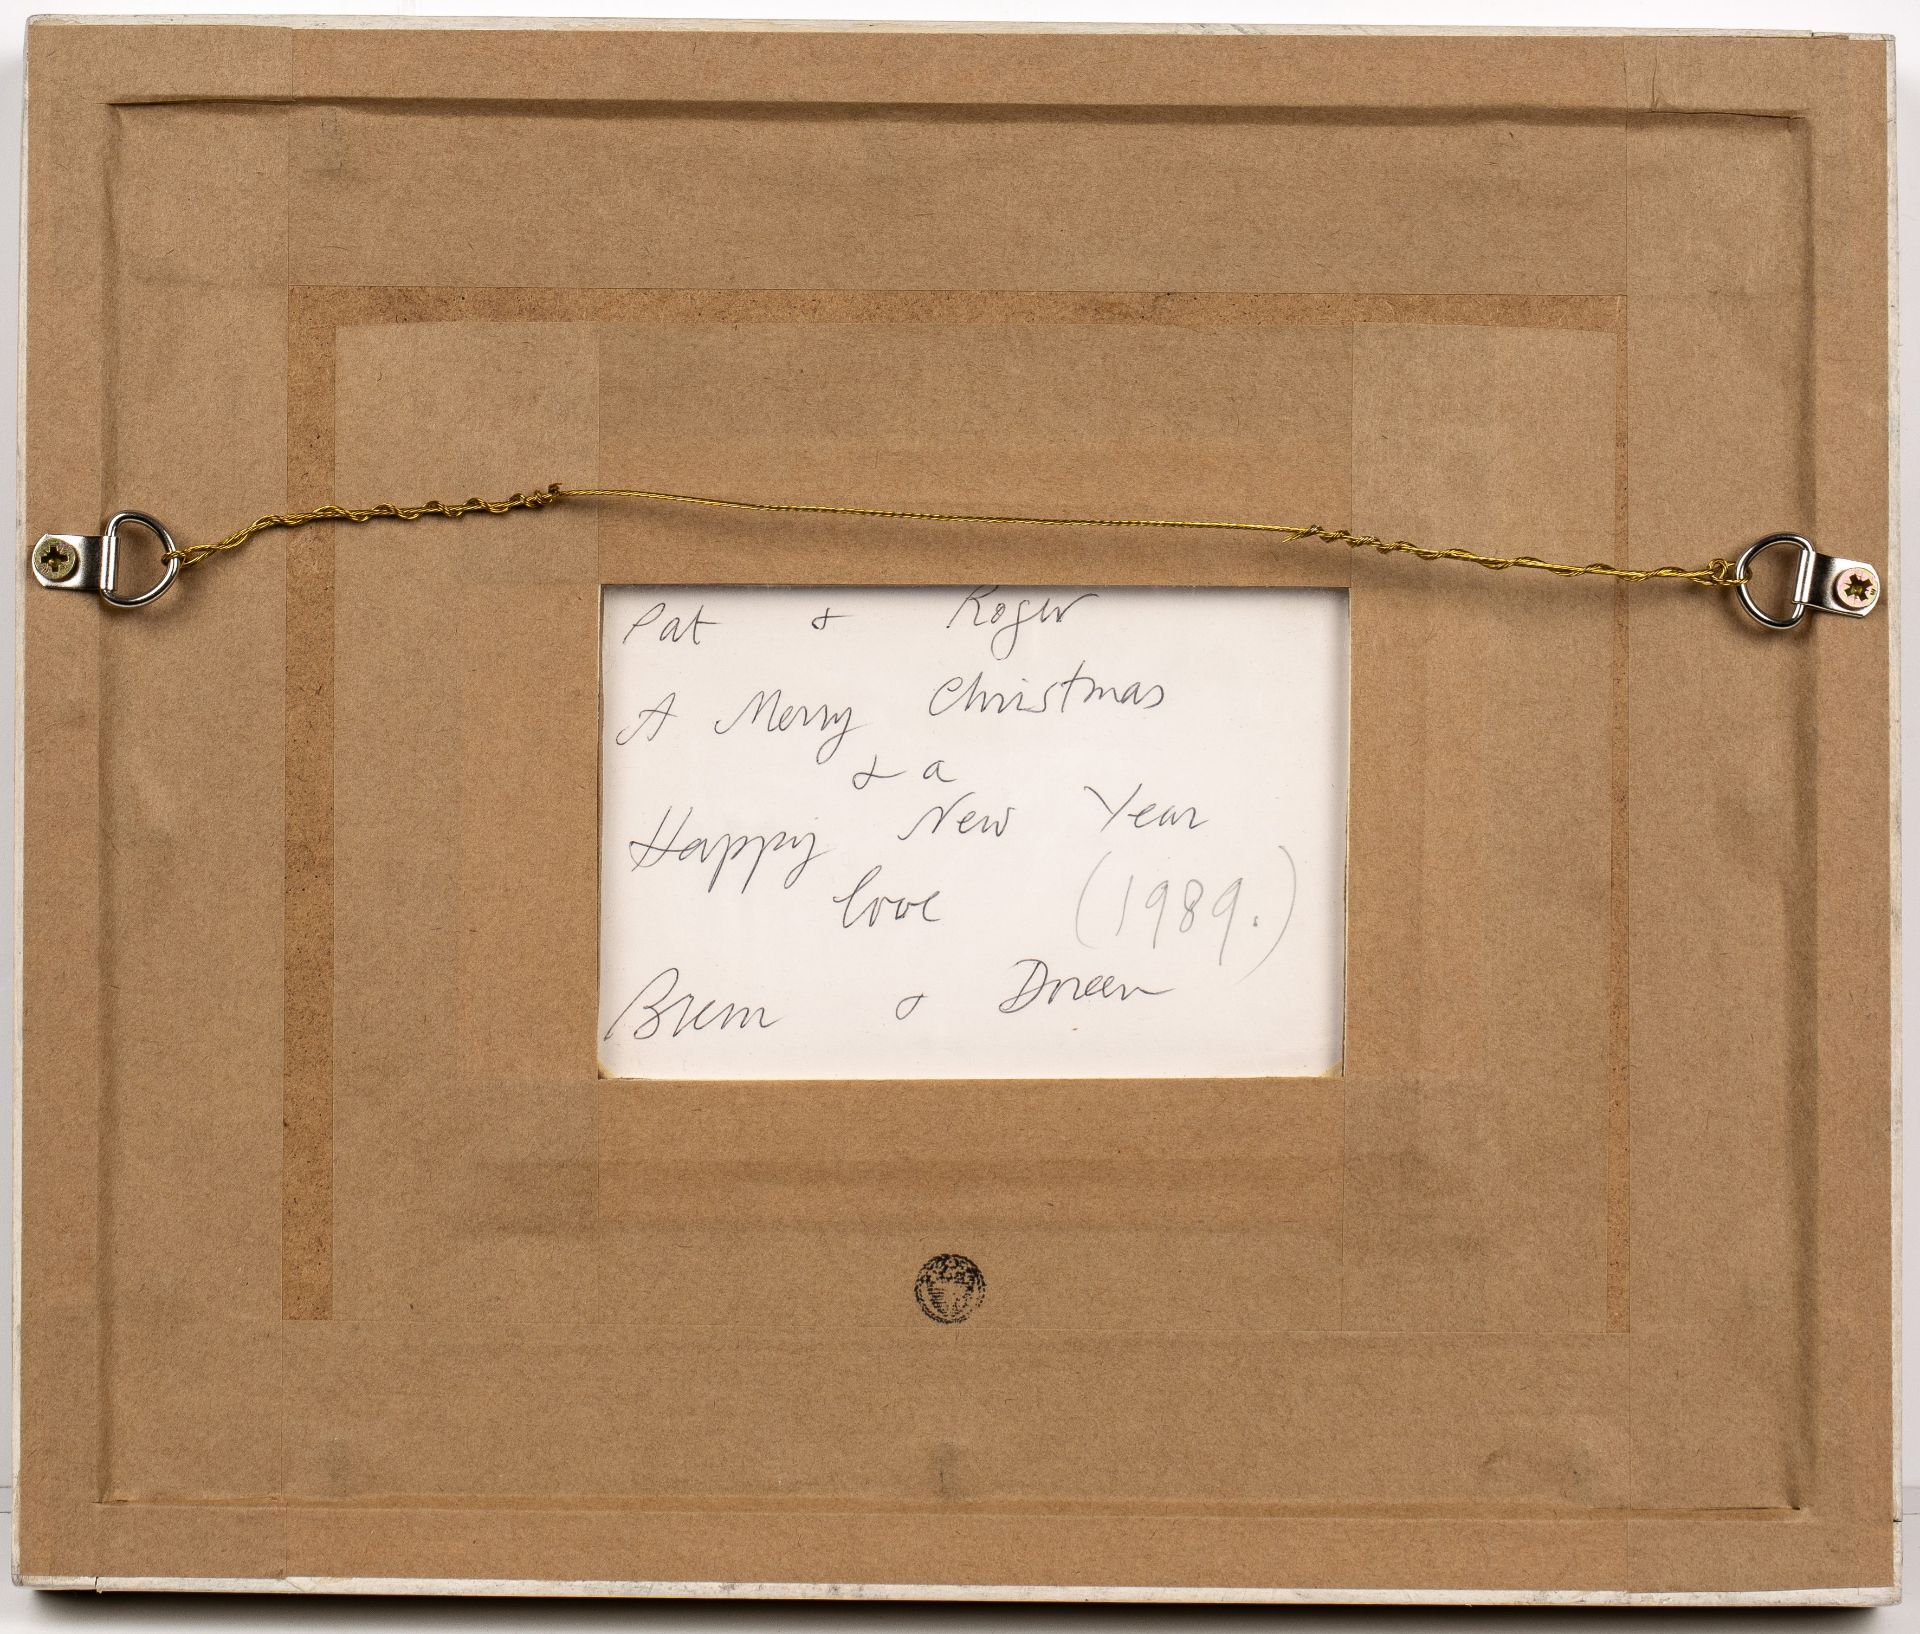 Pat & Roger
A Merry Christmas
& a
Happy New Year
love (1989.)
& Doreen